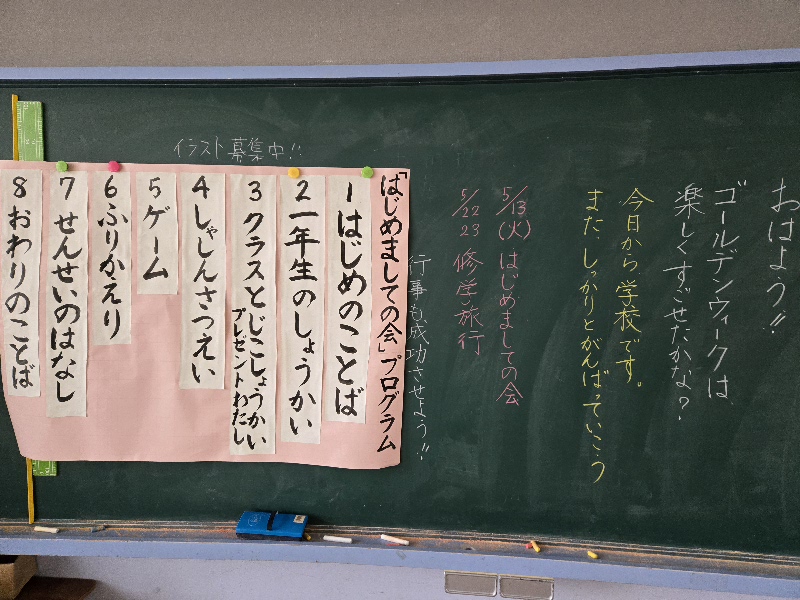 おはよう!!
ゴールデンウィークは、
楽しくすごせたかな?
今日から、学校です。
また、しっかりとがんばっていこう
5/13(火) はじめましての会
5/22 23 修学旅行
行事も成功させよう!!
イラスト募集中!!
「はじめましての会」プログラム
1 はじめのことば
2 一年生のしょうかい
3 クラスとじこしょうかい
プレゼントわたし
4 しゃしんさつえい
5 ゲーム
6 ふりかえり
7 せんせいのはなし
8 おわりのことば